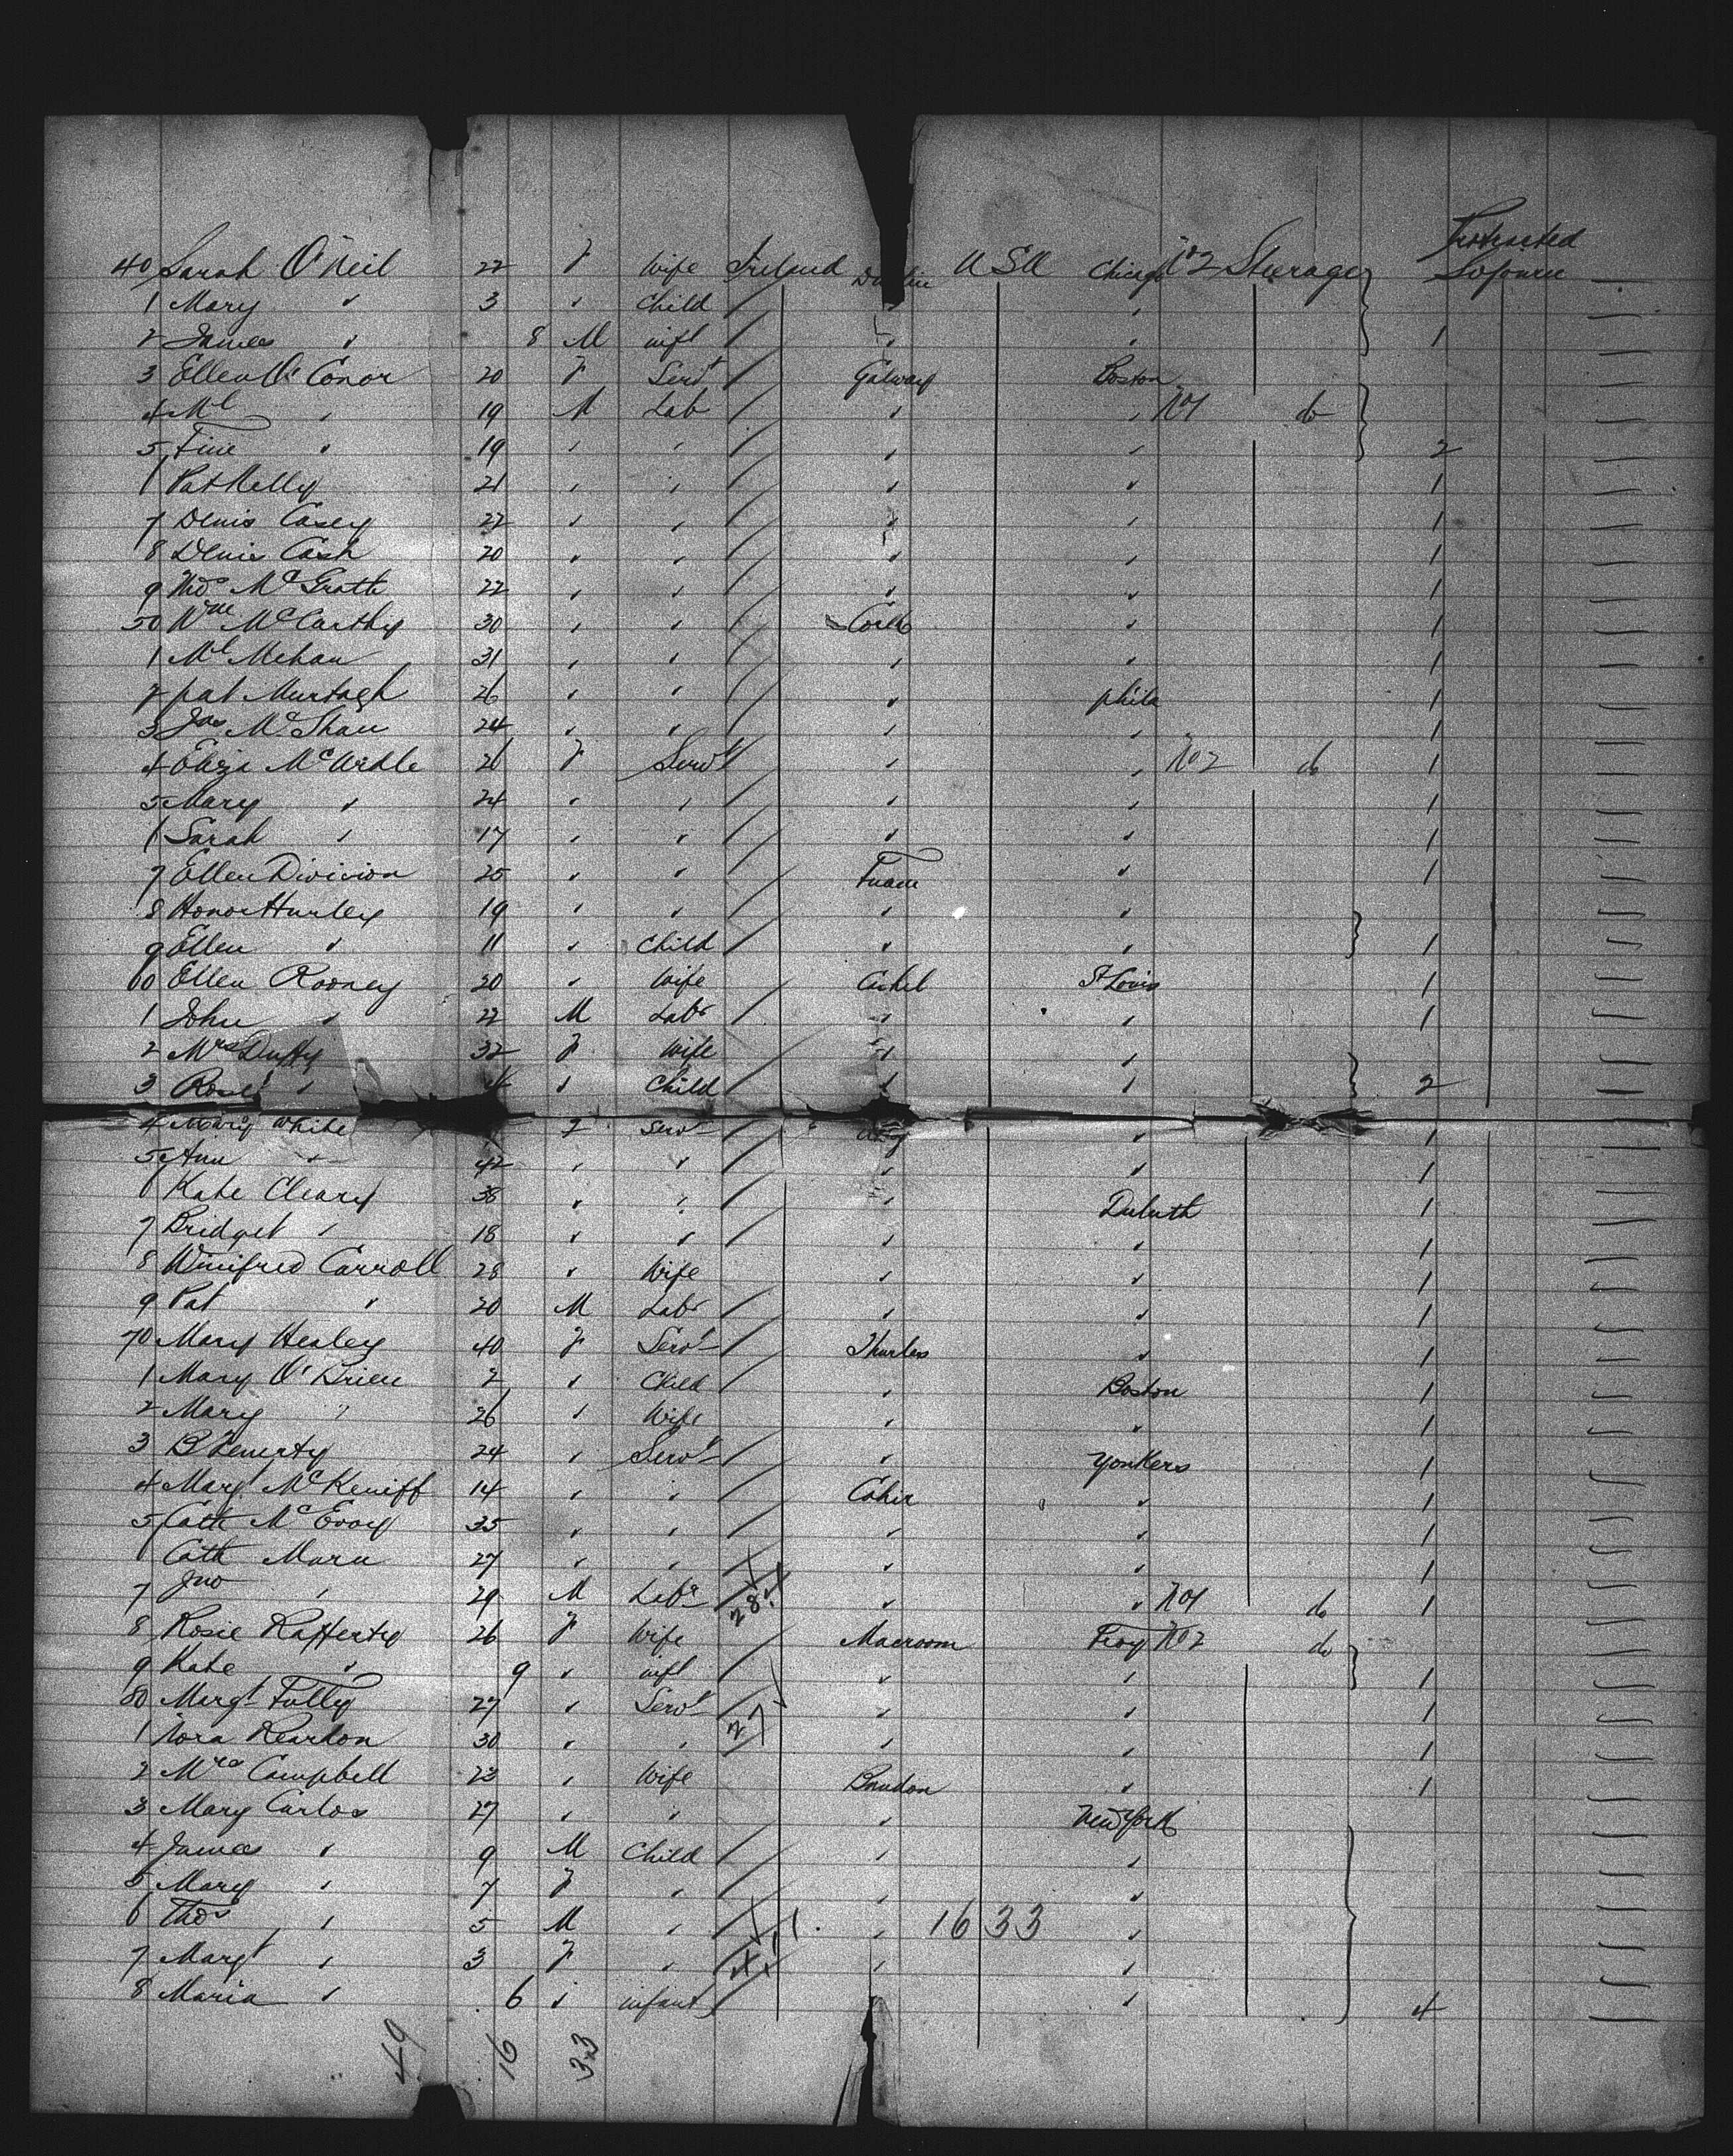 Protracted
40 Sarah O'Neil 22 F Wife Ireland USA Chicago No 2 Steerage Sojourn
1 Mary " 3 " Child / " "
2 James " 8 M inft / " " 1
3 Ellen O'Conor 20 F Servt / Galway Boston
4 Ml " 19 M Lab / " " No 1 do
5 " 19 " " / " " 2
6 Pat Kelly 21 " " / " " 1
7 Denis Casey 22 " " / " " 1
8 Denis Cash 20 " " / " " 1
9 Thos McGrath 22 " " / " " 1
50 Wm McCarthy 30 " " / Cork " 1
1 Ml Mehan 31 " " / " " 1
2 pat Murtagh 26 " " / " phila 1
3 Jas McShan 24 " " / " " 1
4 Eliza McArdle 26 F Servt / " " No 2 do 1
5 Mary " 24 " " / " " 1
6 Sarah " 17 " " / " " 1
7 Ellen Division 25 " " / Tuam " 1
8 Honor Hurley 19 " " / " "
9 Ellen " 11 " Child / " " 1
60 Ellen Rooney 20 " Wife Cashel St Louis 1
1 John " 22 M Labr / " " 1
2 Mrs Duffy 32 F Wife " "
3 Rose " 4 " Child / " " 2
4 Mary White F Servt / " 1
5 Ann " 42 " " / " " 1
6 Kate Cleary 38 " " / " Duluth 1
7 Bridget " 18 " " / " " 1
8 Winifred Carroll 28 " Wife " " 1
9 Pat " 20 M Labr / " " 1
70 Mary Healey 40 F Servt / Thurles " 1
1 Mary O'Brien 2 " Child / " Boston 1
2 Mary " 26 " Wife " " 1
3 24 " Servt / " Yonkers 1
4 Margt McKeniff 14 " " / Cahir " 1
5 Cath McEvoy 35 " " / " " 1
6 Cath Mara 27 " " / " " 1
7 Jno " 29 M Labr 28 " " No 1 do 1
8 Rosie Rafferty 26 F Wife Macroom Troy No 2 do
9 Kate " 9 " inft / " " 1
80 Margt Tully 27 " Servt / " " 1
1 Nora Reardon 30 " " 27 " " 1
2 Mrs Campbell 23 " Wife Bandon " 1
3 Mary Carlos 27 " " " New York
4 James " 9 M Child / " "
5 Mary " 7 F " / " "
6 Thos " 5 M " / " 1633 "
7 Margt " 3 F " " "
8 Maria " 6 " infant / " " 4
49 16 33